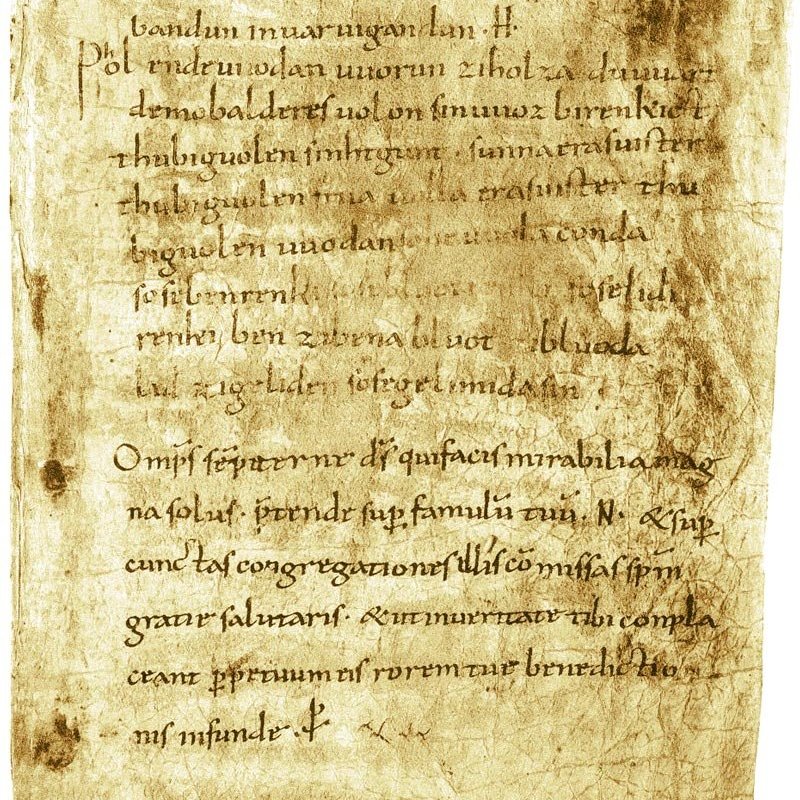 bandun inuaruigandun · H ·
Phol endeuuodan uuorun ziholza du uuart
demobalderes uolon sinuuoz birenkict
thubiguolen sinhtgunt · sunnaerasuister
thubiguolen friia uolla erasuister thu
biguolen uuodan sohe uuola conda
sosebenrenki sose bluotrenki soselidi
renki ben zibena bluot zibluoda
lid zigeliden sosegelimida sin
Omp̄s sēpiterne d̄s qui facis mirabilia mag
na solus · p̄tende sup̱ famulū tuū · N · & sup̱
cunctas congregationes illis cō missas sp̄m
gratie salutaris · & ut in ueritate tibi conpla
ceant p̱petuum eis rorem tue benedictio
nis infunde · P̱